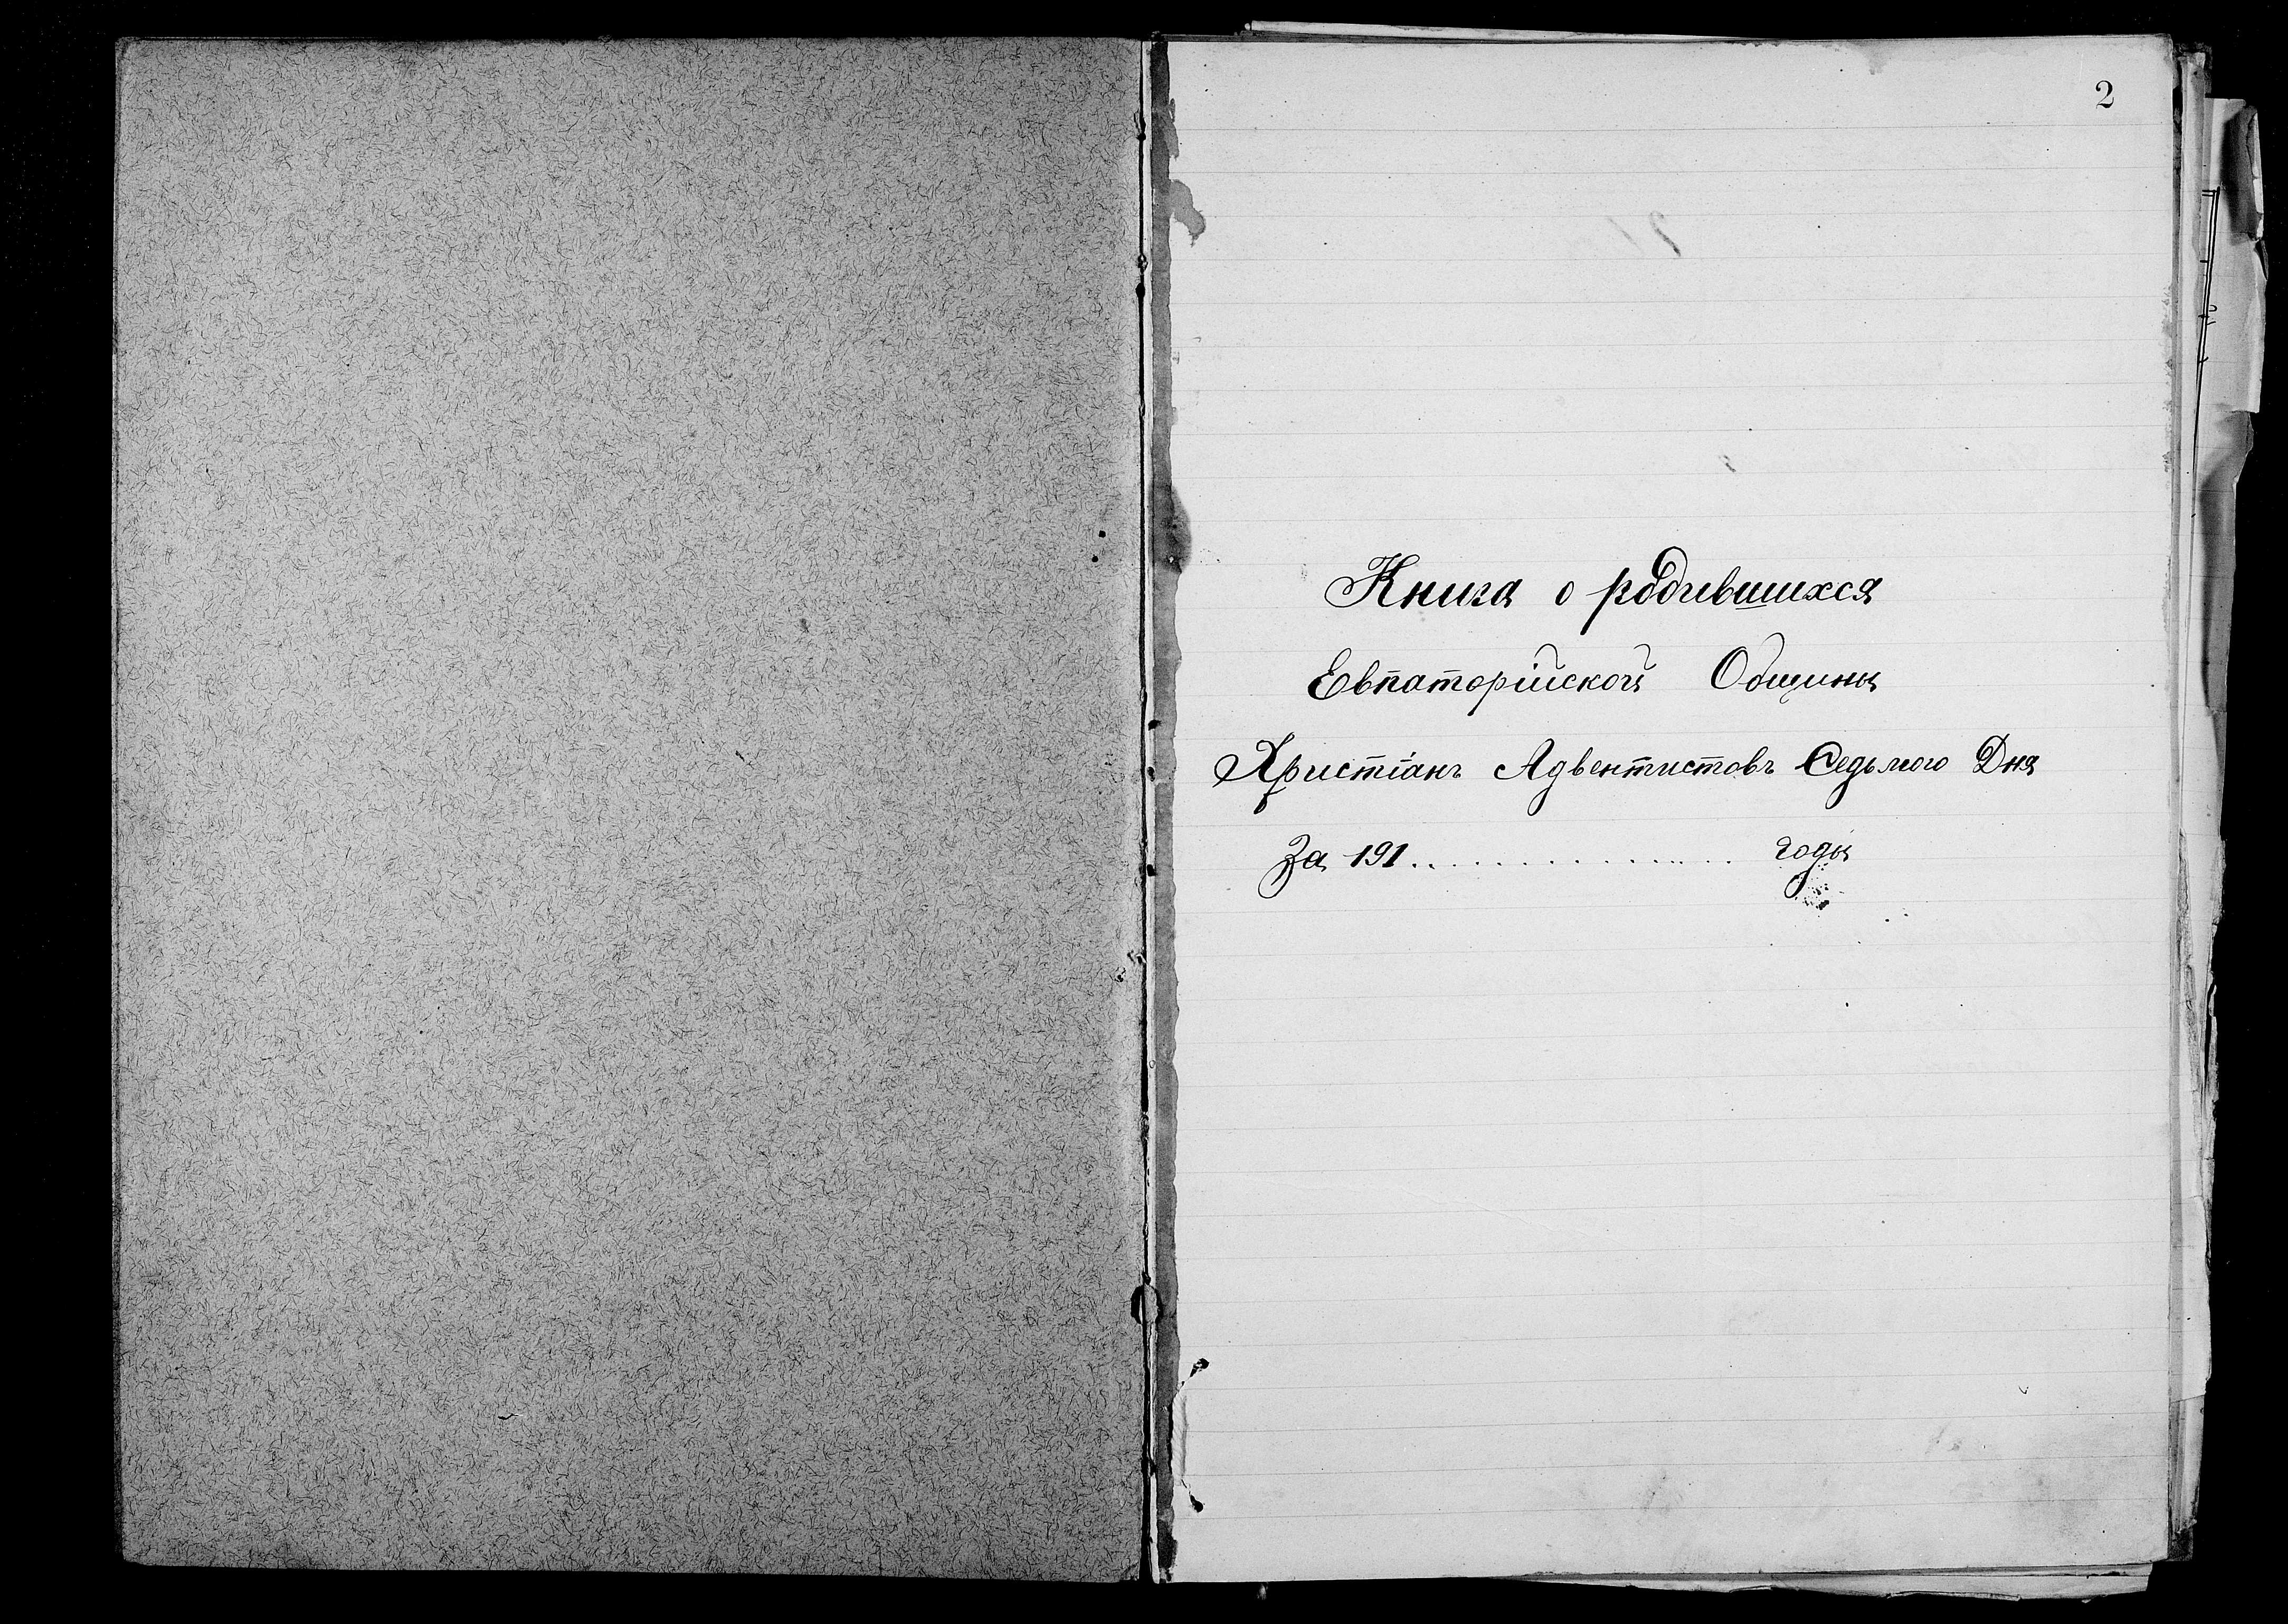 2
Книга о родившихся
Евпаторійской Общины
Христіанъ Адвентистовъ Седьмого Дня
За 191................ годы